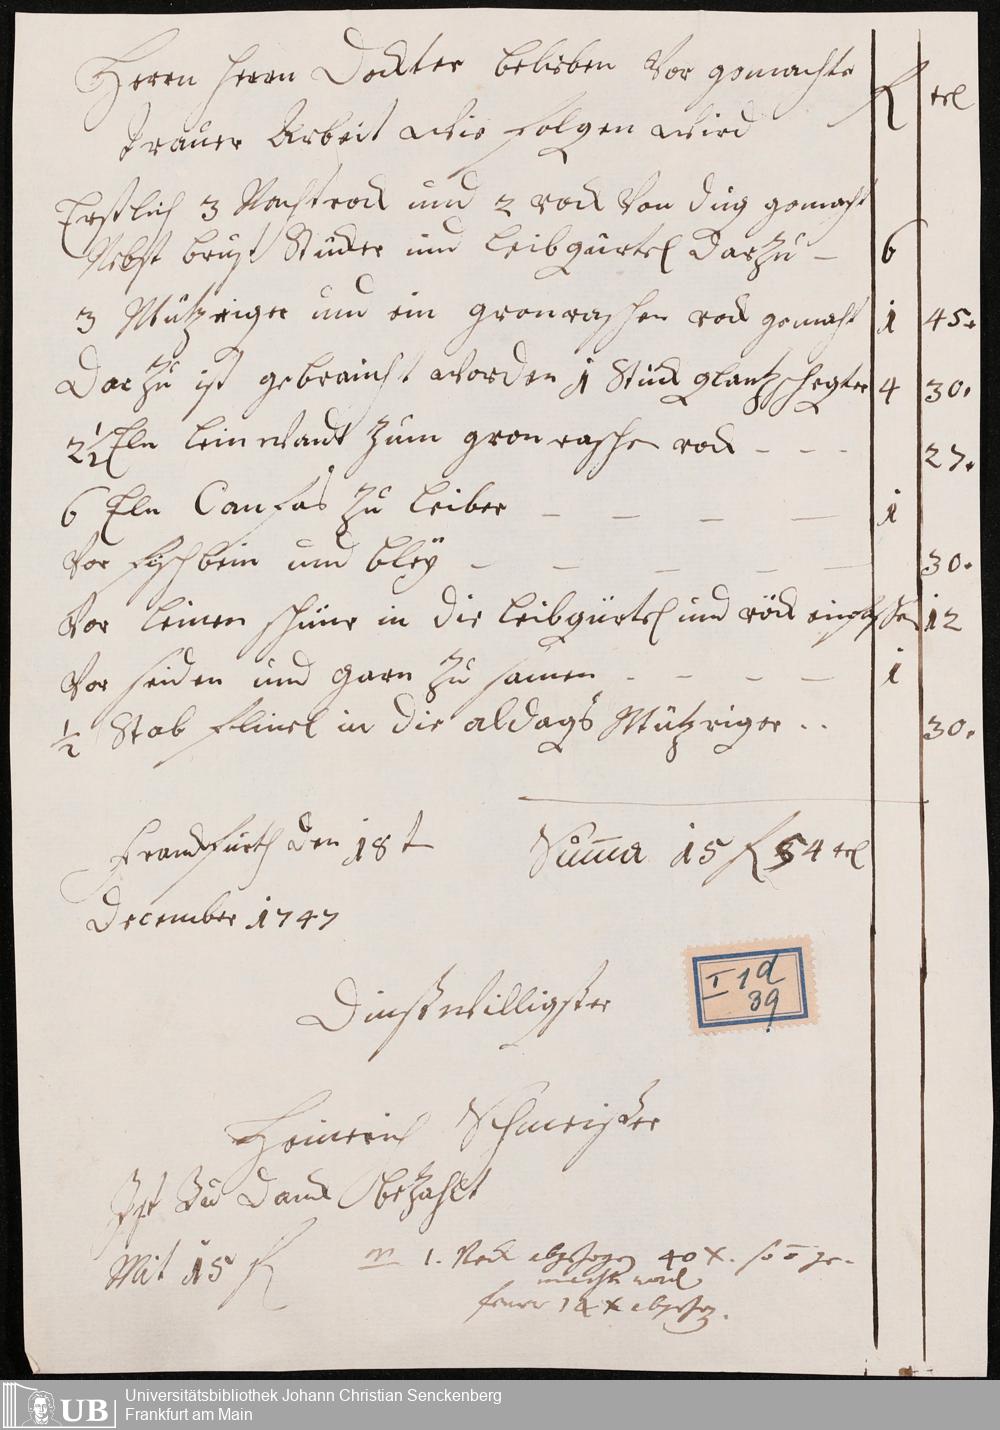 Herrn Herrn Dockter belieben Vor gemachte
f xel
trauer Arbeit wie folgen wird
Erstlich 3 Nachtrock und 2 rock Von Zug gemacht
Nebst brust Stücker und Leibgürtel Darzu – 6
3 Mützriger und ein gronraschen rock gemacht 1 45.
Darzu ist gebraucht worden 1 Stück glantz 4 30.
2½ Eln leinwandt zum gronraschen rock - - - 27.
6 Eln Canfas zu leiber – – – – 1
Vor fischbein und bleÿ – – – – – 30.
Vor leinen schnur in die leibgürtel und röck 12
Vor seiden und garn zu samen - - - – 1
½ Stab flinel in die aldags Mützriger . . 30.
Franckfurth den 18t
Summa 15 f 54 xel
December 1747
I 1d
39
Dinstwilligster
Heinrich Schmeisser
Ist Zu danck bezahlt
Mit 15 f
1. Rock abgezogen 40 x. so
macht word
ferner 14 x abgezog.
UB Universitätsbibliothek Johann Christian Senckenberg
Frankfurt am Main